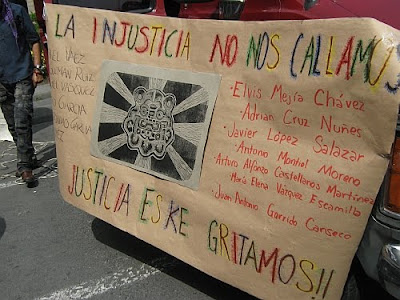 LA INJUSTICIA NO NOS CALLAMUS
RUIZ
GARCIA
Elvis Mejía Chávez
Adrian Cruz Nuñes
Javier López Salazar
Antonio Monhel Moreno
Arturo Alfonso Castellanos Martínez
María Elena Vázquez Escamilla
Juan Antonio Garrido Canseco
JUSTICIA ES KE GRITAMOS!!